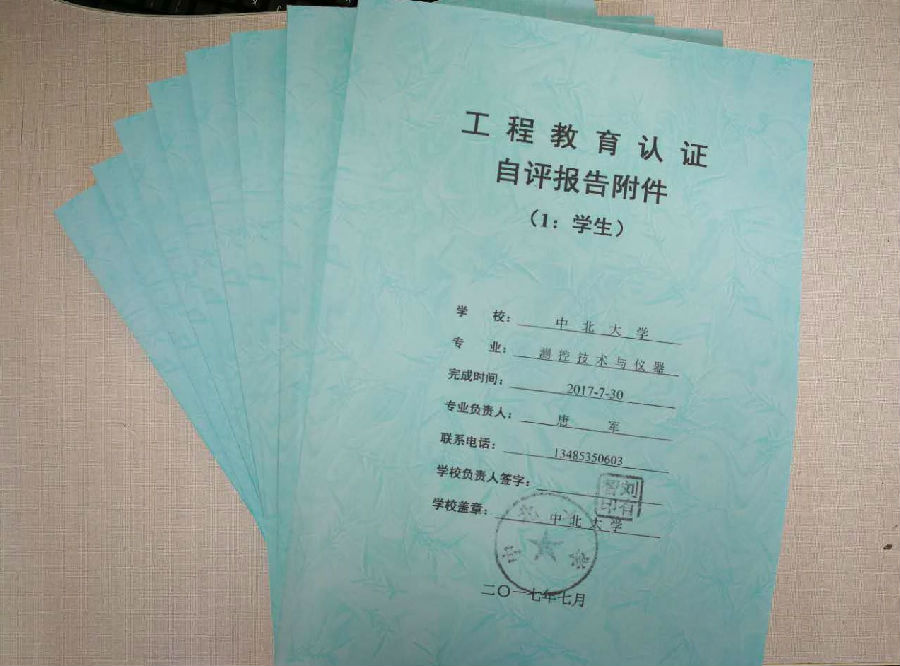 工程教育认证
自评报告附件
（1：学生）
学 校：中北大学
专 业：测控技术与仪器
完成时间：2017-7-30
专业负责人：唐 军
联系电话：13485350603
学校负责人签字：
刘
印
学校盖章：中北大学
二〇一七年七月